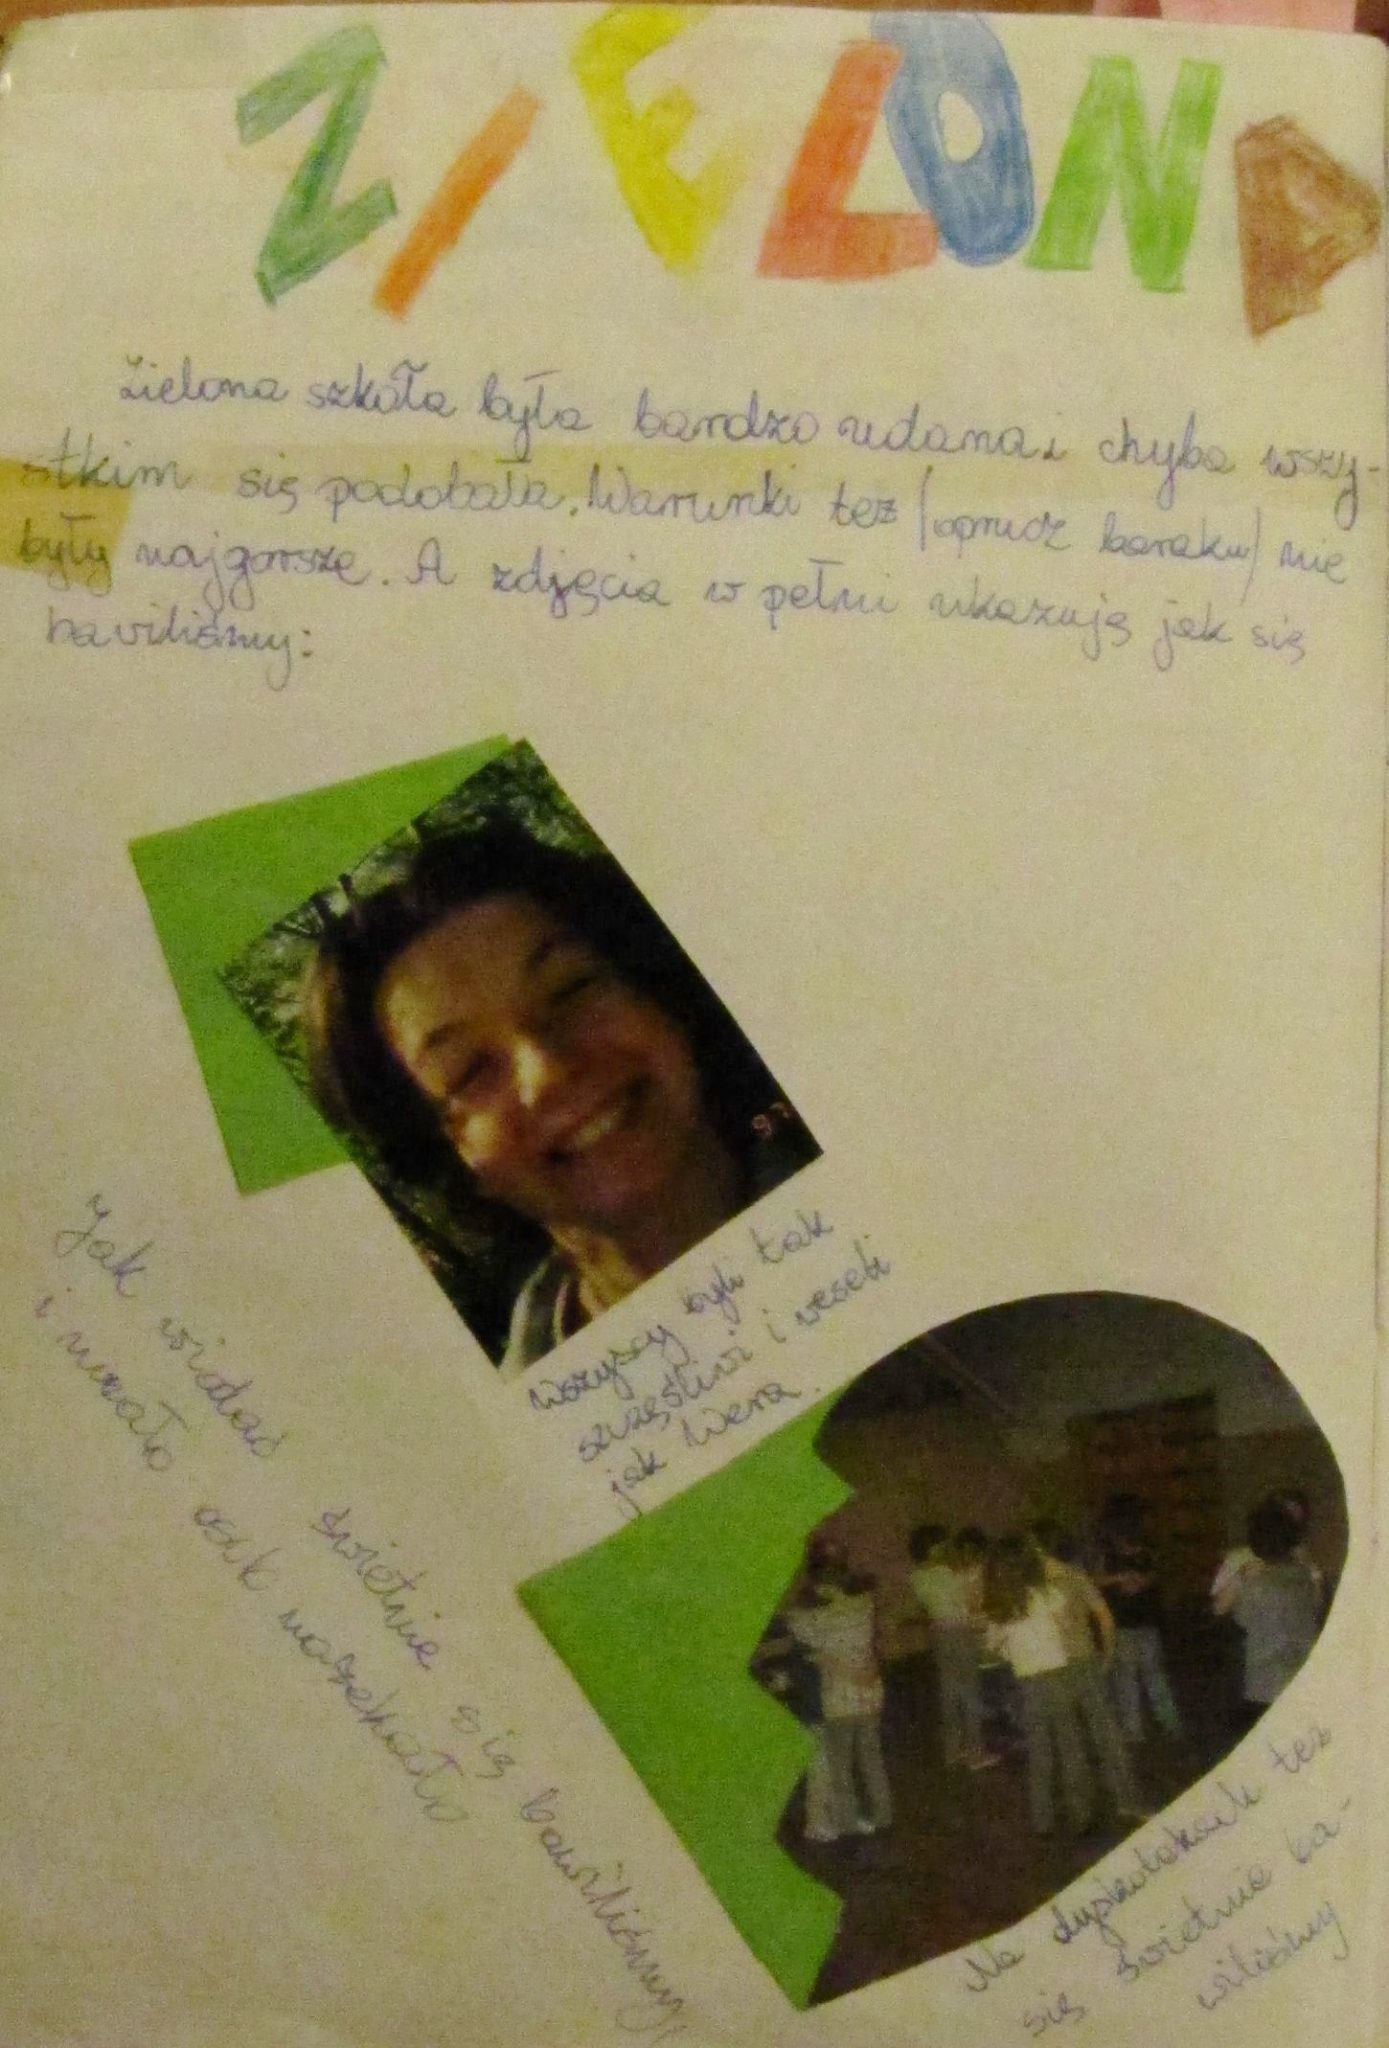 ZIELONA
Zielona szkoła była bardzo udana i chyba wszy-
stkim się podobała. Warunki też (oprucz baraku) nie
były najgorsze. A zdjęcia w pełni ukazują jak się
bawiliśmy:
97
Wszyscy byli tak
szczęśliwi i weseli
jak Wera.
Jak widać świetnie się bawiliśmy,
i mało osób
Na dyskotekach też
się świetnie ba-
wiliśmy